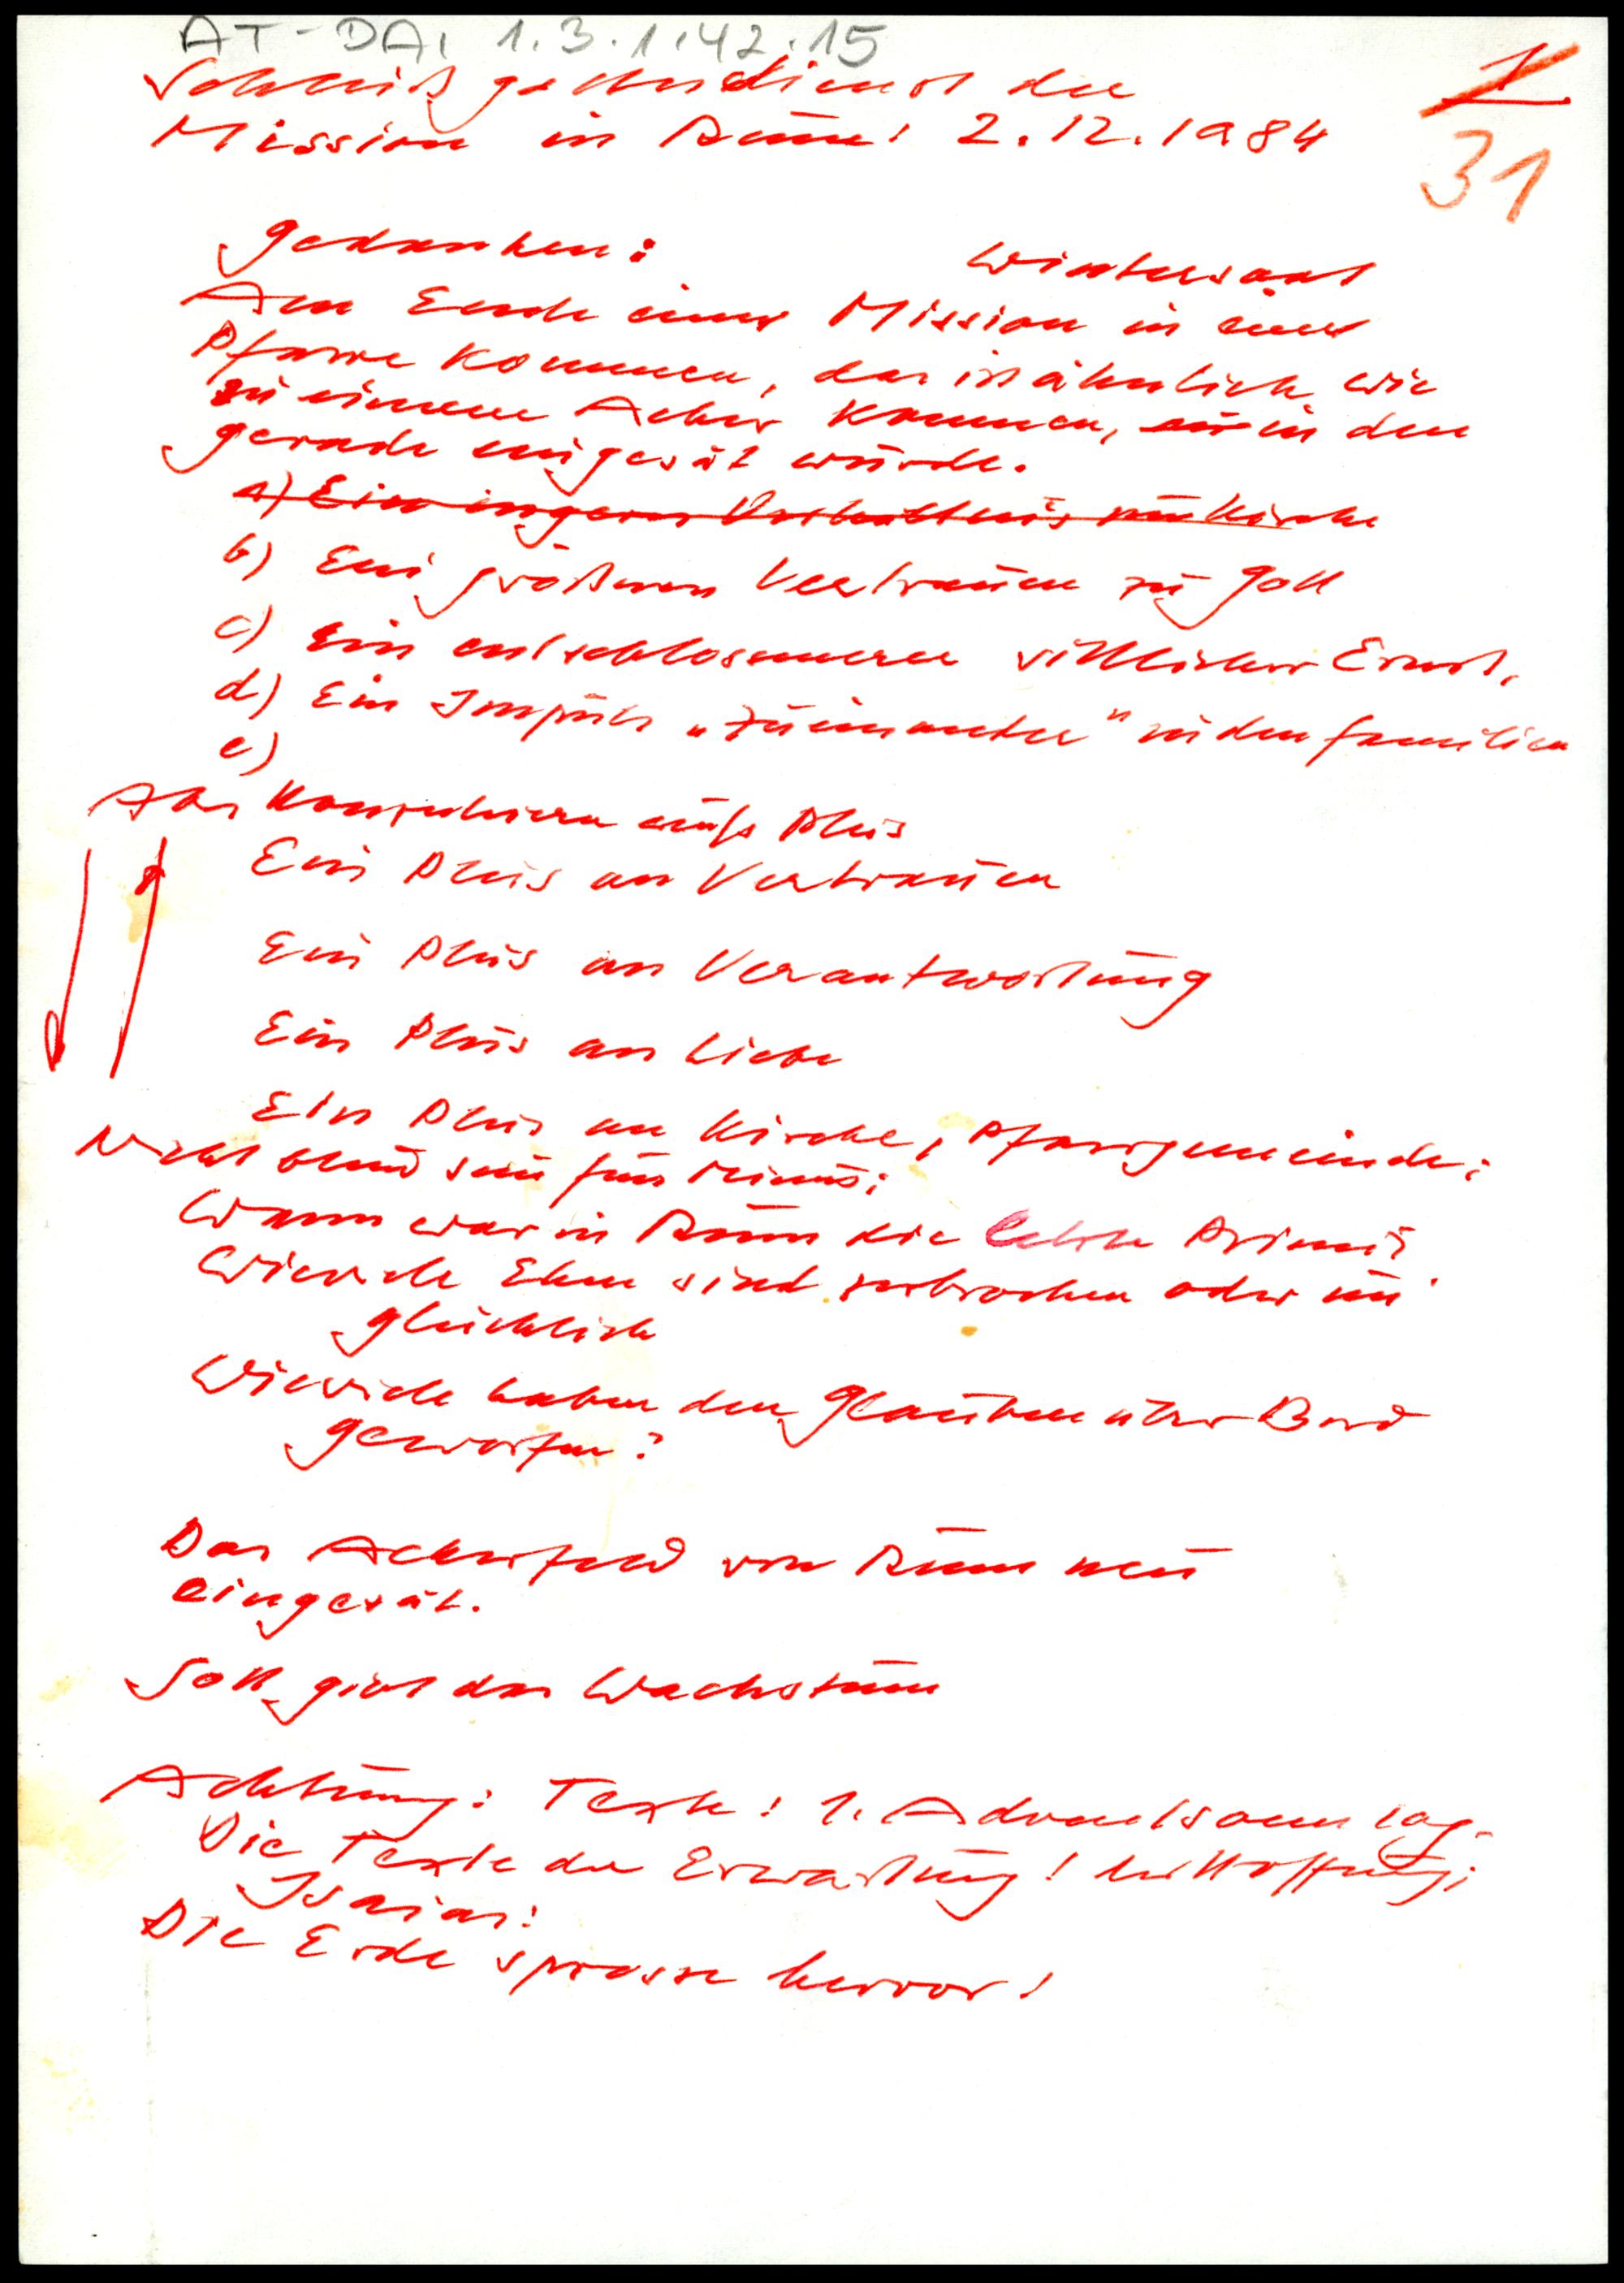 AT-DA, 1.3.1.42.15
Schlußgottesdienst der
Mission in Rum! 2.12.1984
1
31
Gedanken:
Wintersaat
Am Ende einer Mission in eine
Pfarre kommen, das ist ähnlich wie
zu einem Acker kommen, in den
gerade eingesät wurde.
a) Ein engeres Verhältnis zur Kirche
b) Ein größeres Vertrauen zu Gott
c) Ein entschlossener sittlicher Ernst,
d) Ein Impuls „Zueinander" in den Familien
e)
Das Konzentrieren aufs Plus
Ein Plus an Vertrauen
Ein Plus an Verantwortung
Ein Plus an Liebe
Ein Plus an Kirche, Pfarrgemeinde:
Nicht blind sein fürs Minus:
Wann war in Rum die letzte Primiz
Wieviele Ehen sind zerbrochen oder un
glücklich
Wieviele haben den Glauben über Bord
geworfen?
Das Ackerfeld von Rum neu
eingesät.
Gott gibt das Wachstum
Achtung: Texte! 1. Adventsonntag.
Die Texte der Erwartung! der Hoffnung;
Isaias:
Die Erde sprosse hervor!